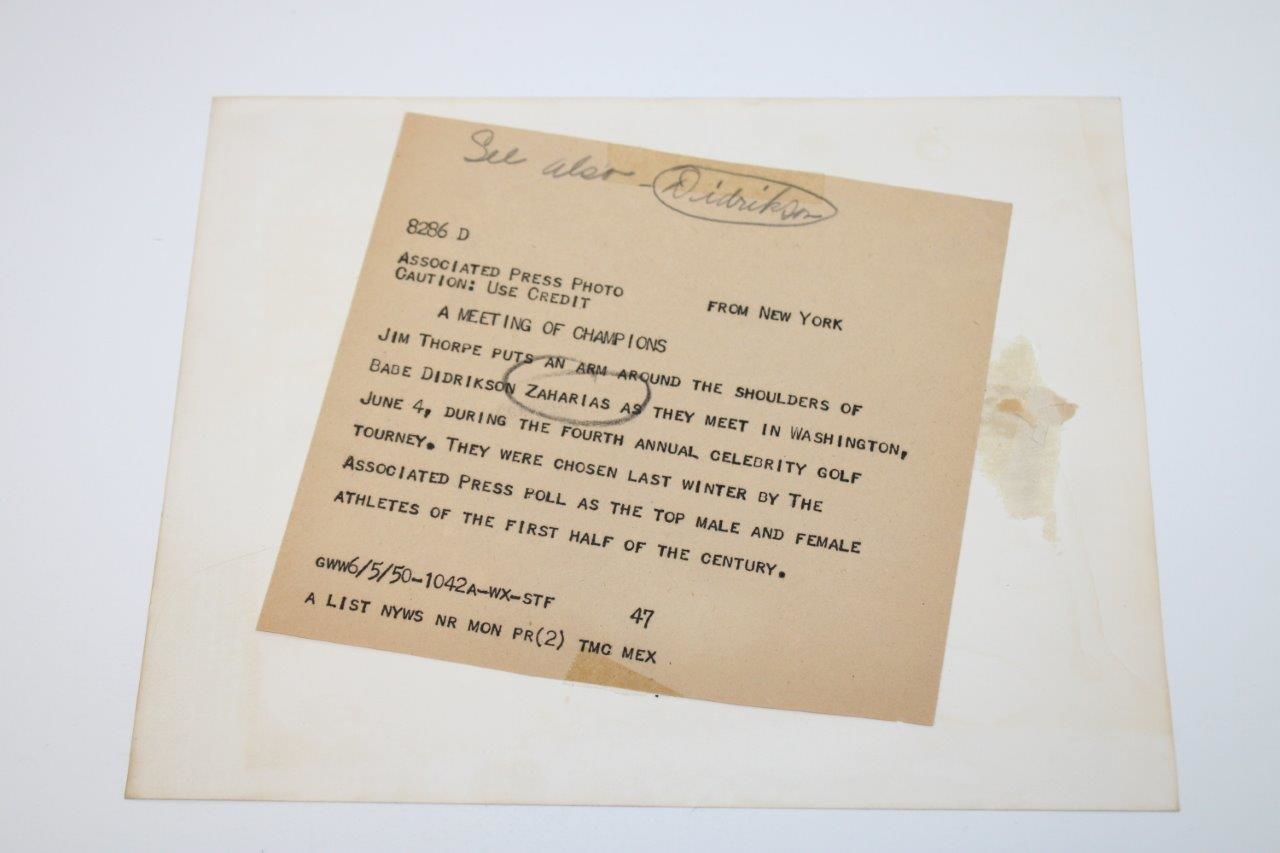 See also - Didrikson
8286 D
ASSOCIATED PRESS PHOTO
CAUTION: USE CREDIT
FROM NEW YORK
A MEETING OF CHAMPIONS
JIM THORPE PUTS AN ARM AROUND THE SHOULDERS OF
BABE DIDRIKSON ZAHARIAS AS THEY MEET IN WASHINGTON,
JUNE 4, DURING THE FOURTH ANNUAL CELEBRITY GOLF
TOURNEY. THEY WERE CHOSEN LAST WINTER BY THE
ASSOCIATED PRESS POLL AS THE TOP MALE AND FEMALE
ATHLETES OF THE FIRST HALF OF THE CENTURY.
GWW6/5/50-1042A-WX-STF 47
A LIST NYWS NR MON PR(2) TMC MEX